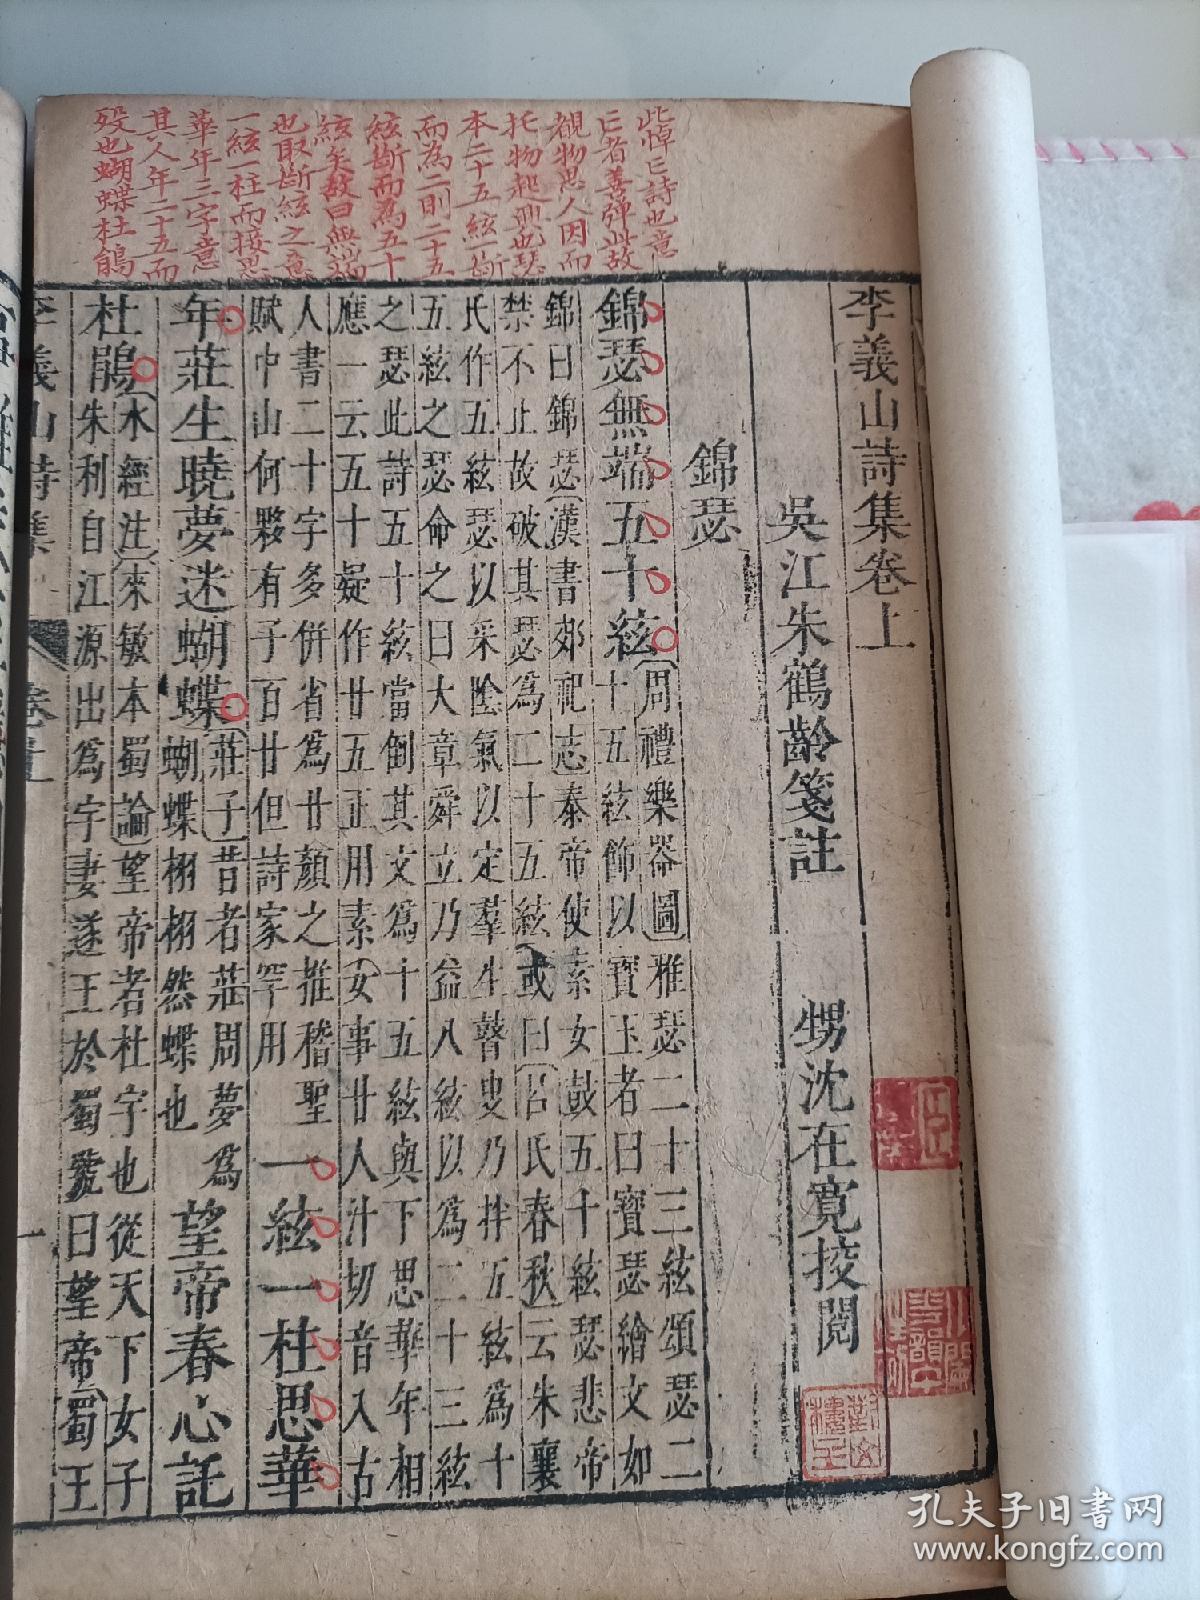 此悼亡詩也意
亡者善弹此故
覩物思人因而
托物起興也瑟
本二十五絃一斷
而為二則二十五
絃斷而為五十
絃矣故曰無端
也取斷絃之意
一絃一柱而接思
華年三字意
其人年二十五而
歿也蝴蝶杜鵑
李義山詩集卷上
吳江朱鶴齡箋註 甥沈在寬挍閱
錦瑟
錦瑟無端五十絃
周禮樂器圖雅瑟二十三絃頌瑟二
十五絃飾以寶玉者曰寶瑟繪文如
錦曰錦瑟漢書郊祀志泰帝使素女鼓五十絃瑟悲帝
禁不止故破其瑟爲二十五絃或曰呂氏春秋云朱襄
氏作五絃瑟以采陰氣以定羣生瞽叟乃拌五絃爲十
五絃之瑟命之曰大章舜立乃益八絃以爲二十三絃
之瑟此詩五十絃當倒其文爲十五絃與下思華年相
應一云五十疑作廿五正用素女事廿人汁切音入古
人書二十字多併省爲廿顏之推稽聖
賦中山何夥有子百廿但詩家罕用
一絃一柱思華
年莊生曉夢迷蝴蝶
莊子昔者莊周夢爲
蝴蝶栩栩然蝶也
望帝春心託
杜鵑
水經注來敏本蜀論望帝者杜宇也從天下女子
朱利自江源出爲宇妻遂王於蜀號曰望帝蜀王
李義山詩集 卷上 一
孔夫子旧书网
www.kongfz.com